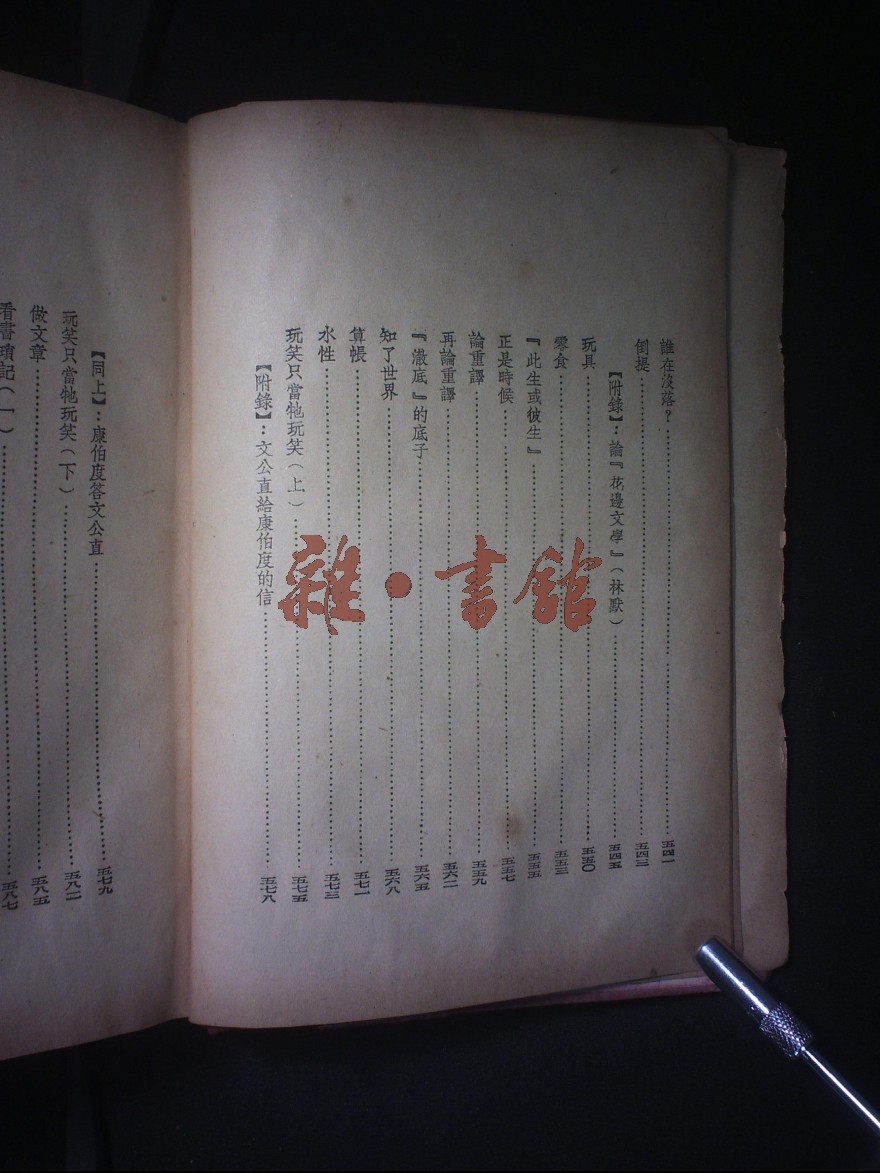 誰在沒落？……五四一
倒提……五四三
【附錄】：論『花邊文學』（林默）……五四五
玩具……五五〇
零食……五五三
『此生或彼生』……五五五
正是時候……五五七
論重譯……五五九
再論重譯……五六二
『澈底』的底子……五六五
知了世界……五六八
算帳……五七一
水性……五七三
玩笑只當牠玩笑（上）……五七五
【附錄】：文公直給康伯度的信……五七八
【同上】：康伯度答文公直……五七九
玩笑只當牠玩笑（下）……五八二
做文章……五八五
看書瑣記（一）……五八七
雜·書館